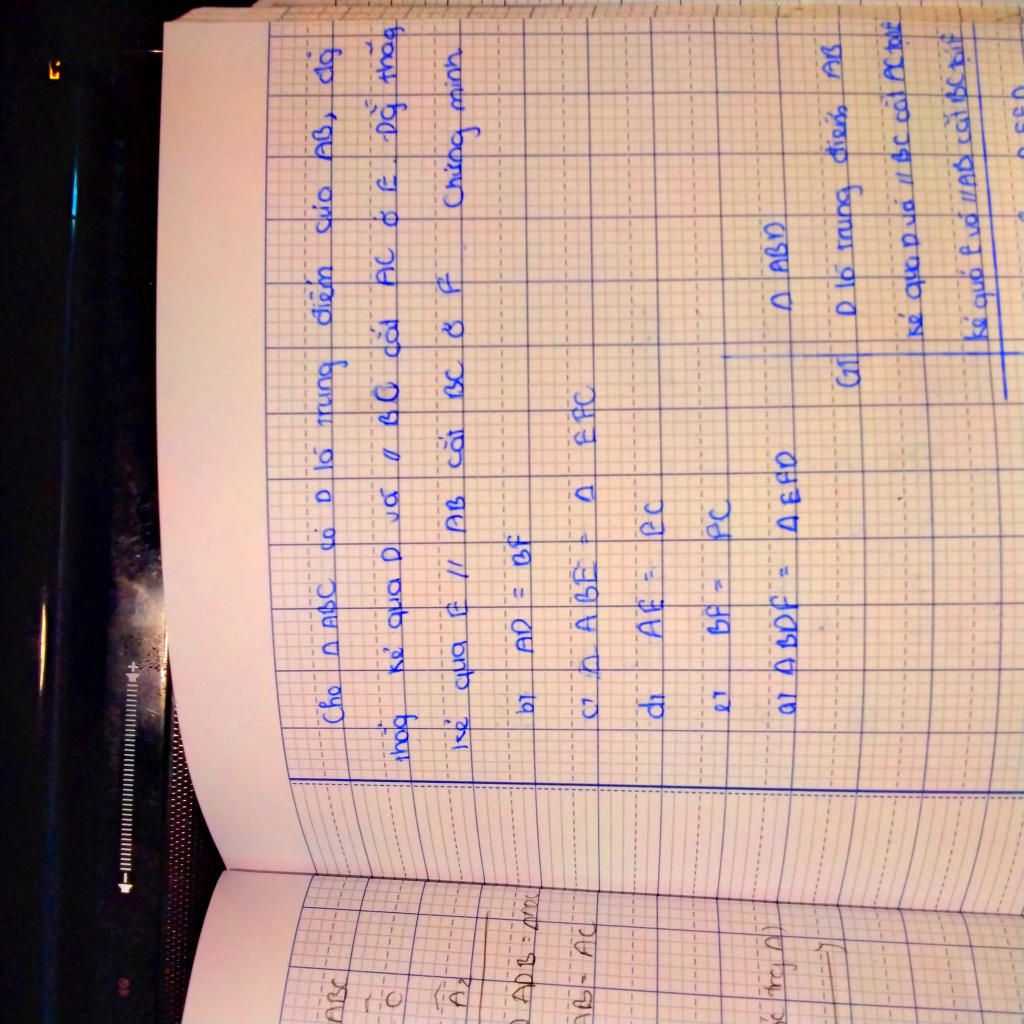 Cho Δ ABC có D là trung điểm của AB, đg
thẳg kẻ qua D và // BC cắt AC ở E. Dg thẳg
kẻ qua E // AB cắt BC ở F Chứng minh
b) AD = BF
c) Δ ABE = Δ EFC
d) AE = EC
e) BF = FC
a) Δ BDF = Δ EFD
GT Δ ABD
D là trung điểm AB
kẻ qua D và // BC cắt AC tại E
kẻ qua E và // AB cắt BC tại F
ABC
C
A₂
ADB =
AB = AC